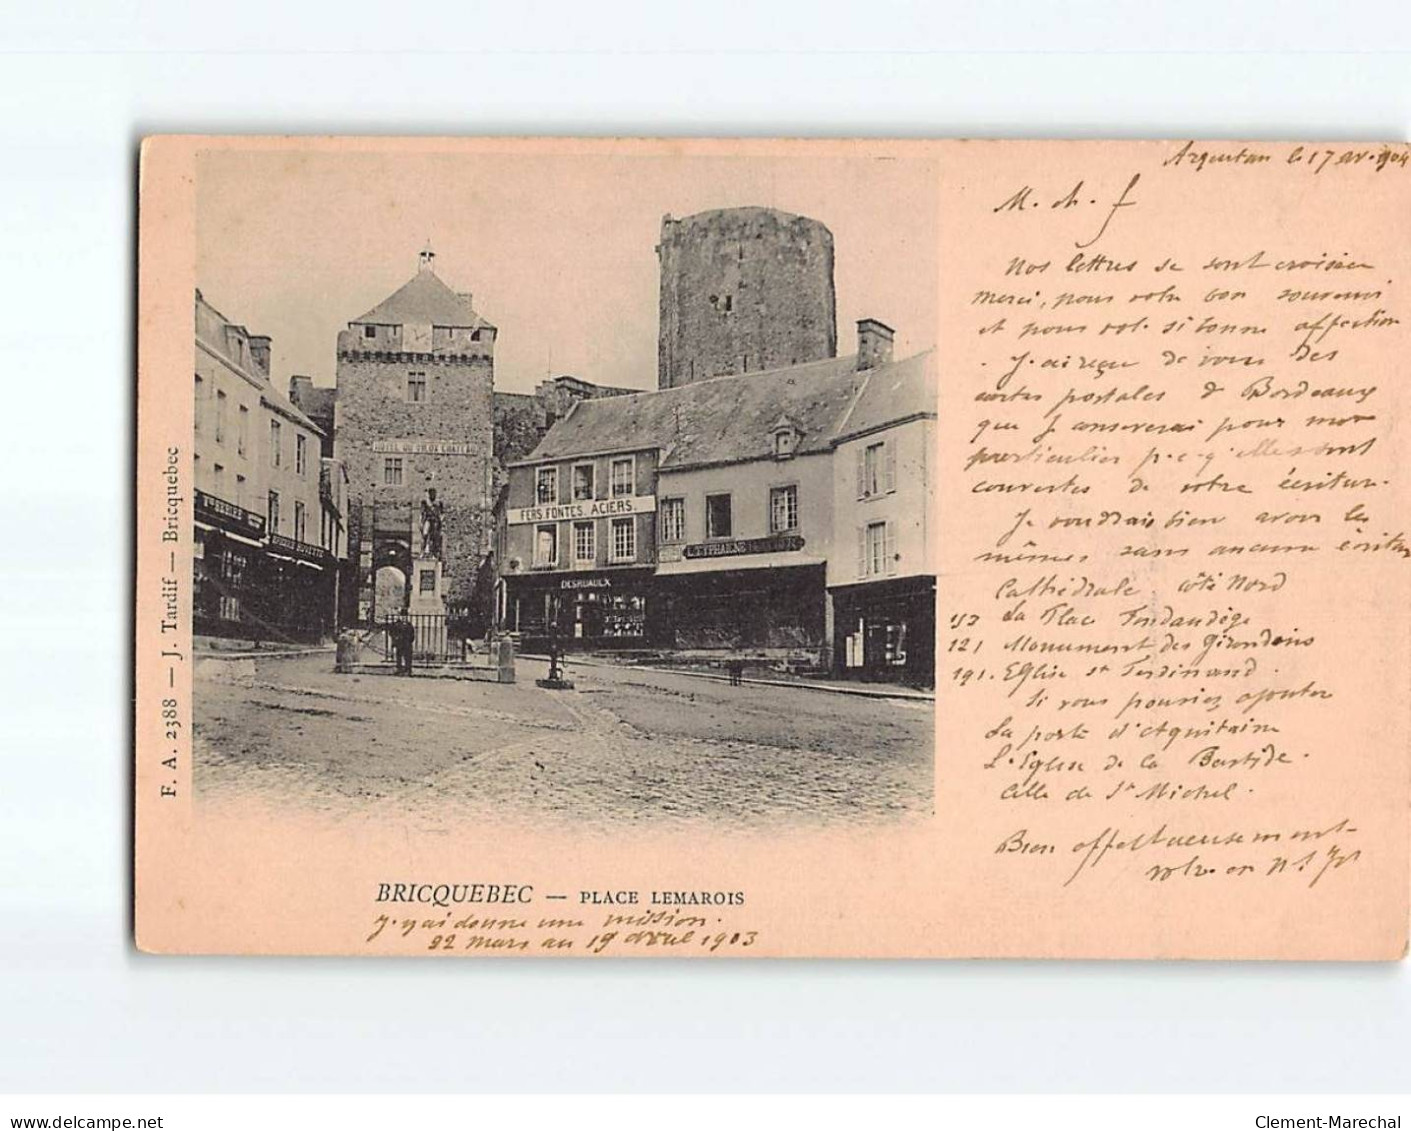 Argentan le 17 av. 1904
M. ch. f
Nos lettres se sont croisées
merci, pour votre bon souvenir
et pour vot. si bonne affection
. J'ai reçu de vous des
cartes postales de Bordeaux
que je conserverai pour moi
particulier p.c.q. elles sont
couvertes de votre écriture.
Je voudrais bien avoir les
mêmes sans aucune écriture
Cathédrale côté Nord
153 La Place Fondaudège
121 Monument des Girondins
191. Eglise St Ferdinand.
Si vous pouviez ajouter
La porte d'Aquitaine
L'Eglise de la Bastide.
Celle de St Michel.
Bien affectueusement
votre en N.S.
HOTEL DU VIEUX CHATEAU
FERS. FONTES. ACIERS.
DESRUAULX
LETYPHAIENE
BUVETTE
F. A. 2388 — J. Tardif — Bricquebec
BRICQUEBEC — PLACE LEMAROIS
J'y ai donné une mission.
22 mars au 19 avril 1903
www.delcampe.net
Clement-Marechal